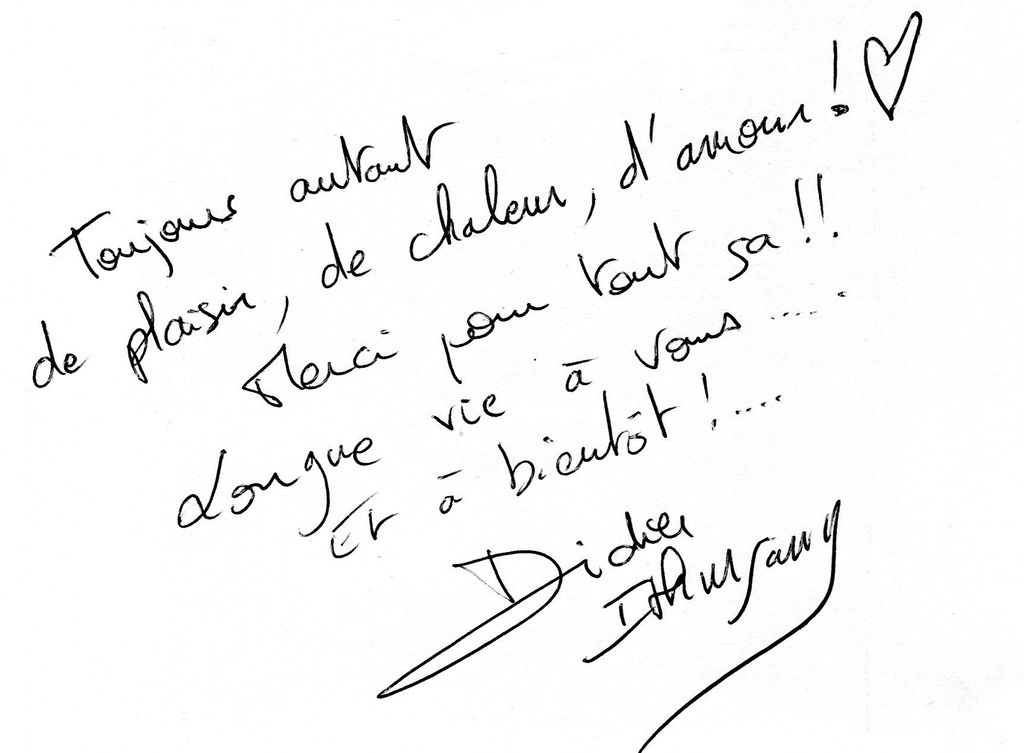 Toujours autant
de plaisir, de chaleur, d'amour! ♡
Merci pour tout ça!!
Longue vie à vous.....
Et à bientôt!....
Didier